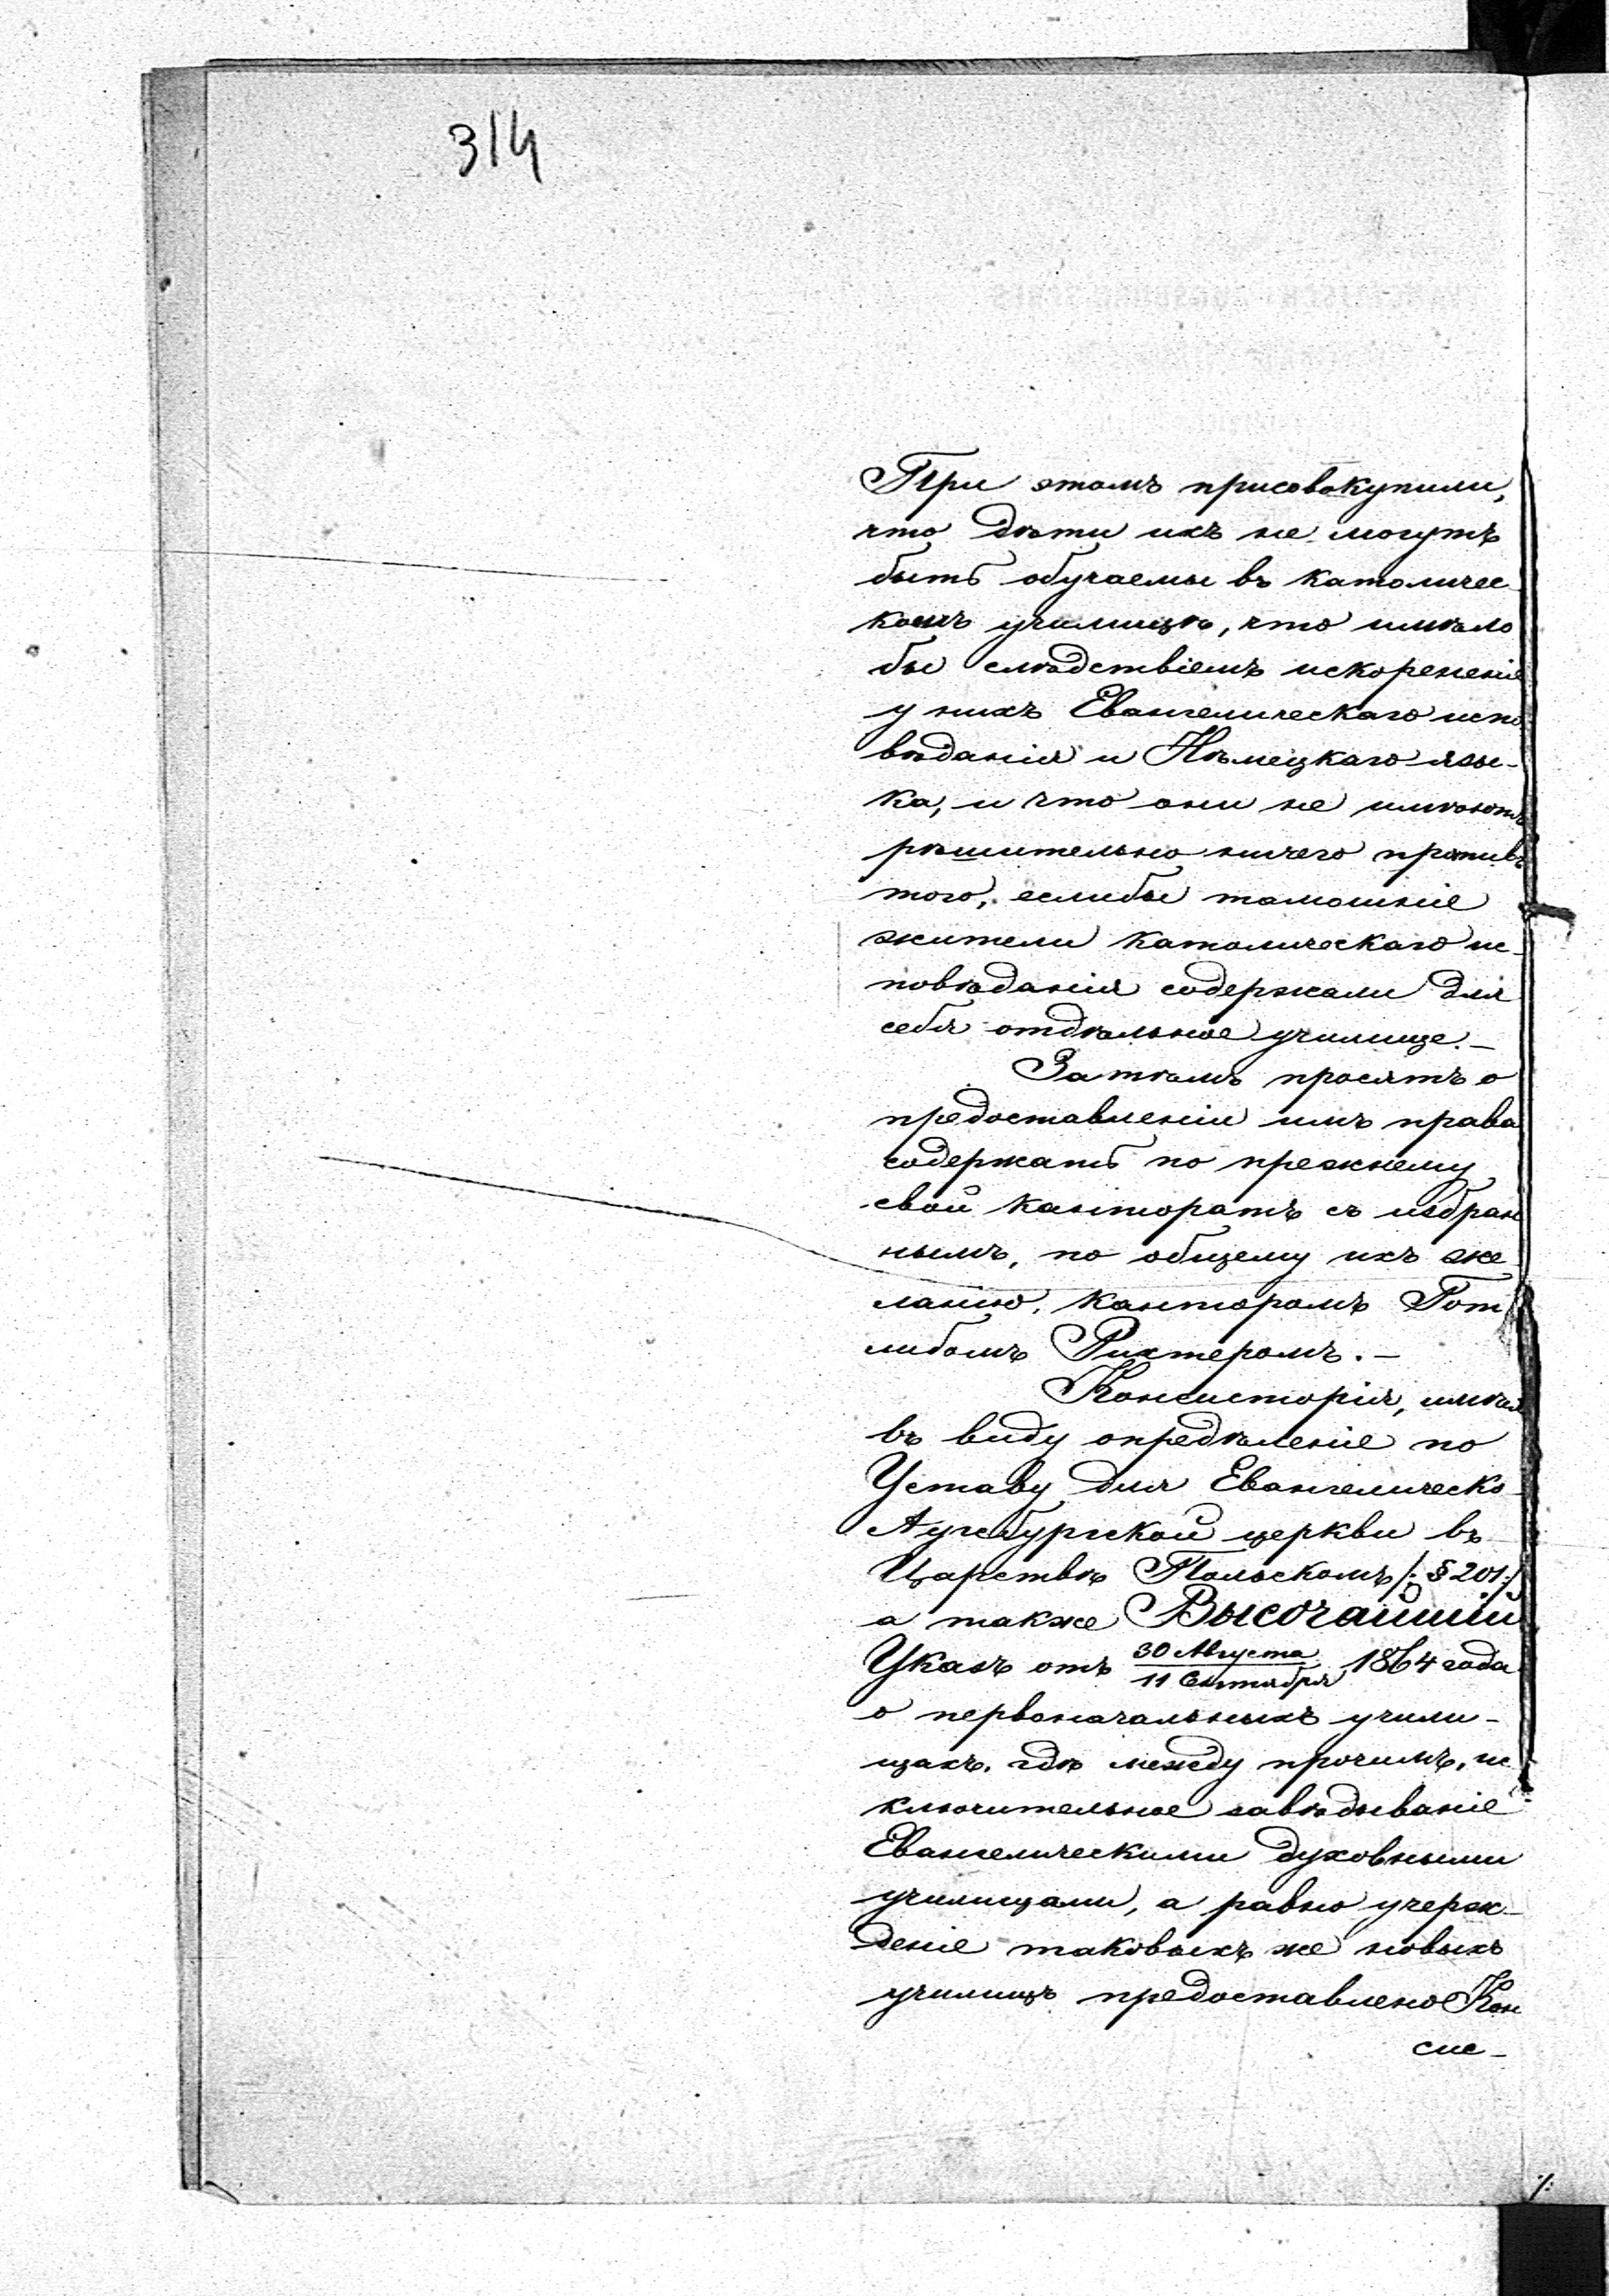 314
При этомъ присовокупили,
что дѣти ихъ не могутъ
быть обучаемы въ католичес
комъ училищѣ, что имѣло
бы слѣдствіемъ искорененіе
у нихъ Евангелическаго испо
вѣданія и Нѣмецкаго язы-
ка, и что они не имѣютъ
рѣшительно ничего противъ
того, еслибы тамошніе
жители католическаго ис-
повѣданія содержали для
себя отдѣльное училище.—
Затѣмъ просятъ о
предоставленіи имъ права
содержать по прежнему
свой канторатъ съ избран
нымъ, по общему ихъ же
ланію, канторомъ Гот
либомъ Рихтеромъ.—
Консисторія, имѣя
въ виду опредѣленіе по
Уставу для Евангелическо-
Аугсбургской церкви въ
Царствѣ Польскомъ /: § 201:/
а также Высочайшій
Указъ отъ 30 Августа/11 Сентября 1864 года
о первоначальныхъ учили-
щахъ, гдѣ между прочимъ, ис
ключительное завѣдываніе
Евангелическими духовными
училищами, а равно учереж-
деніе таковыхъ же новыхъ
училищъ предоставлено Кон
сис-